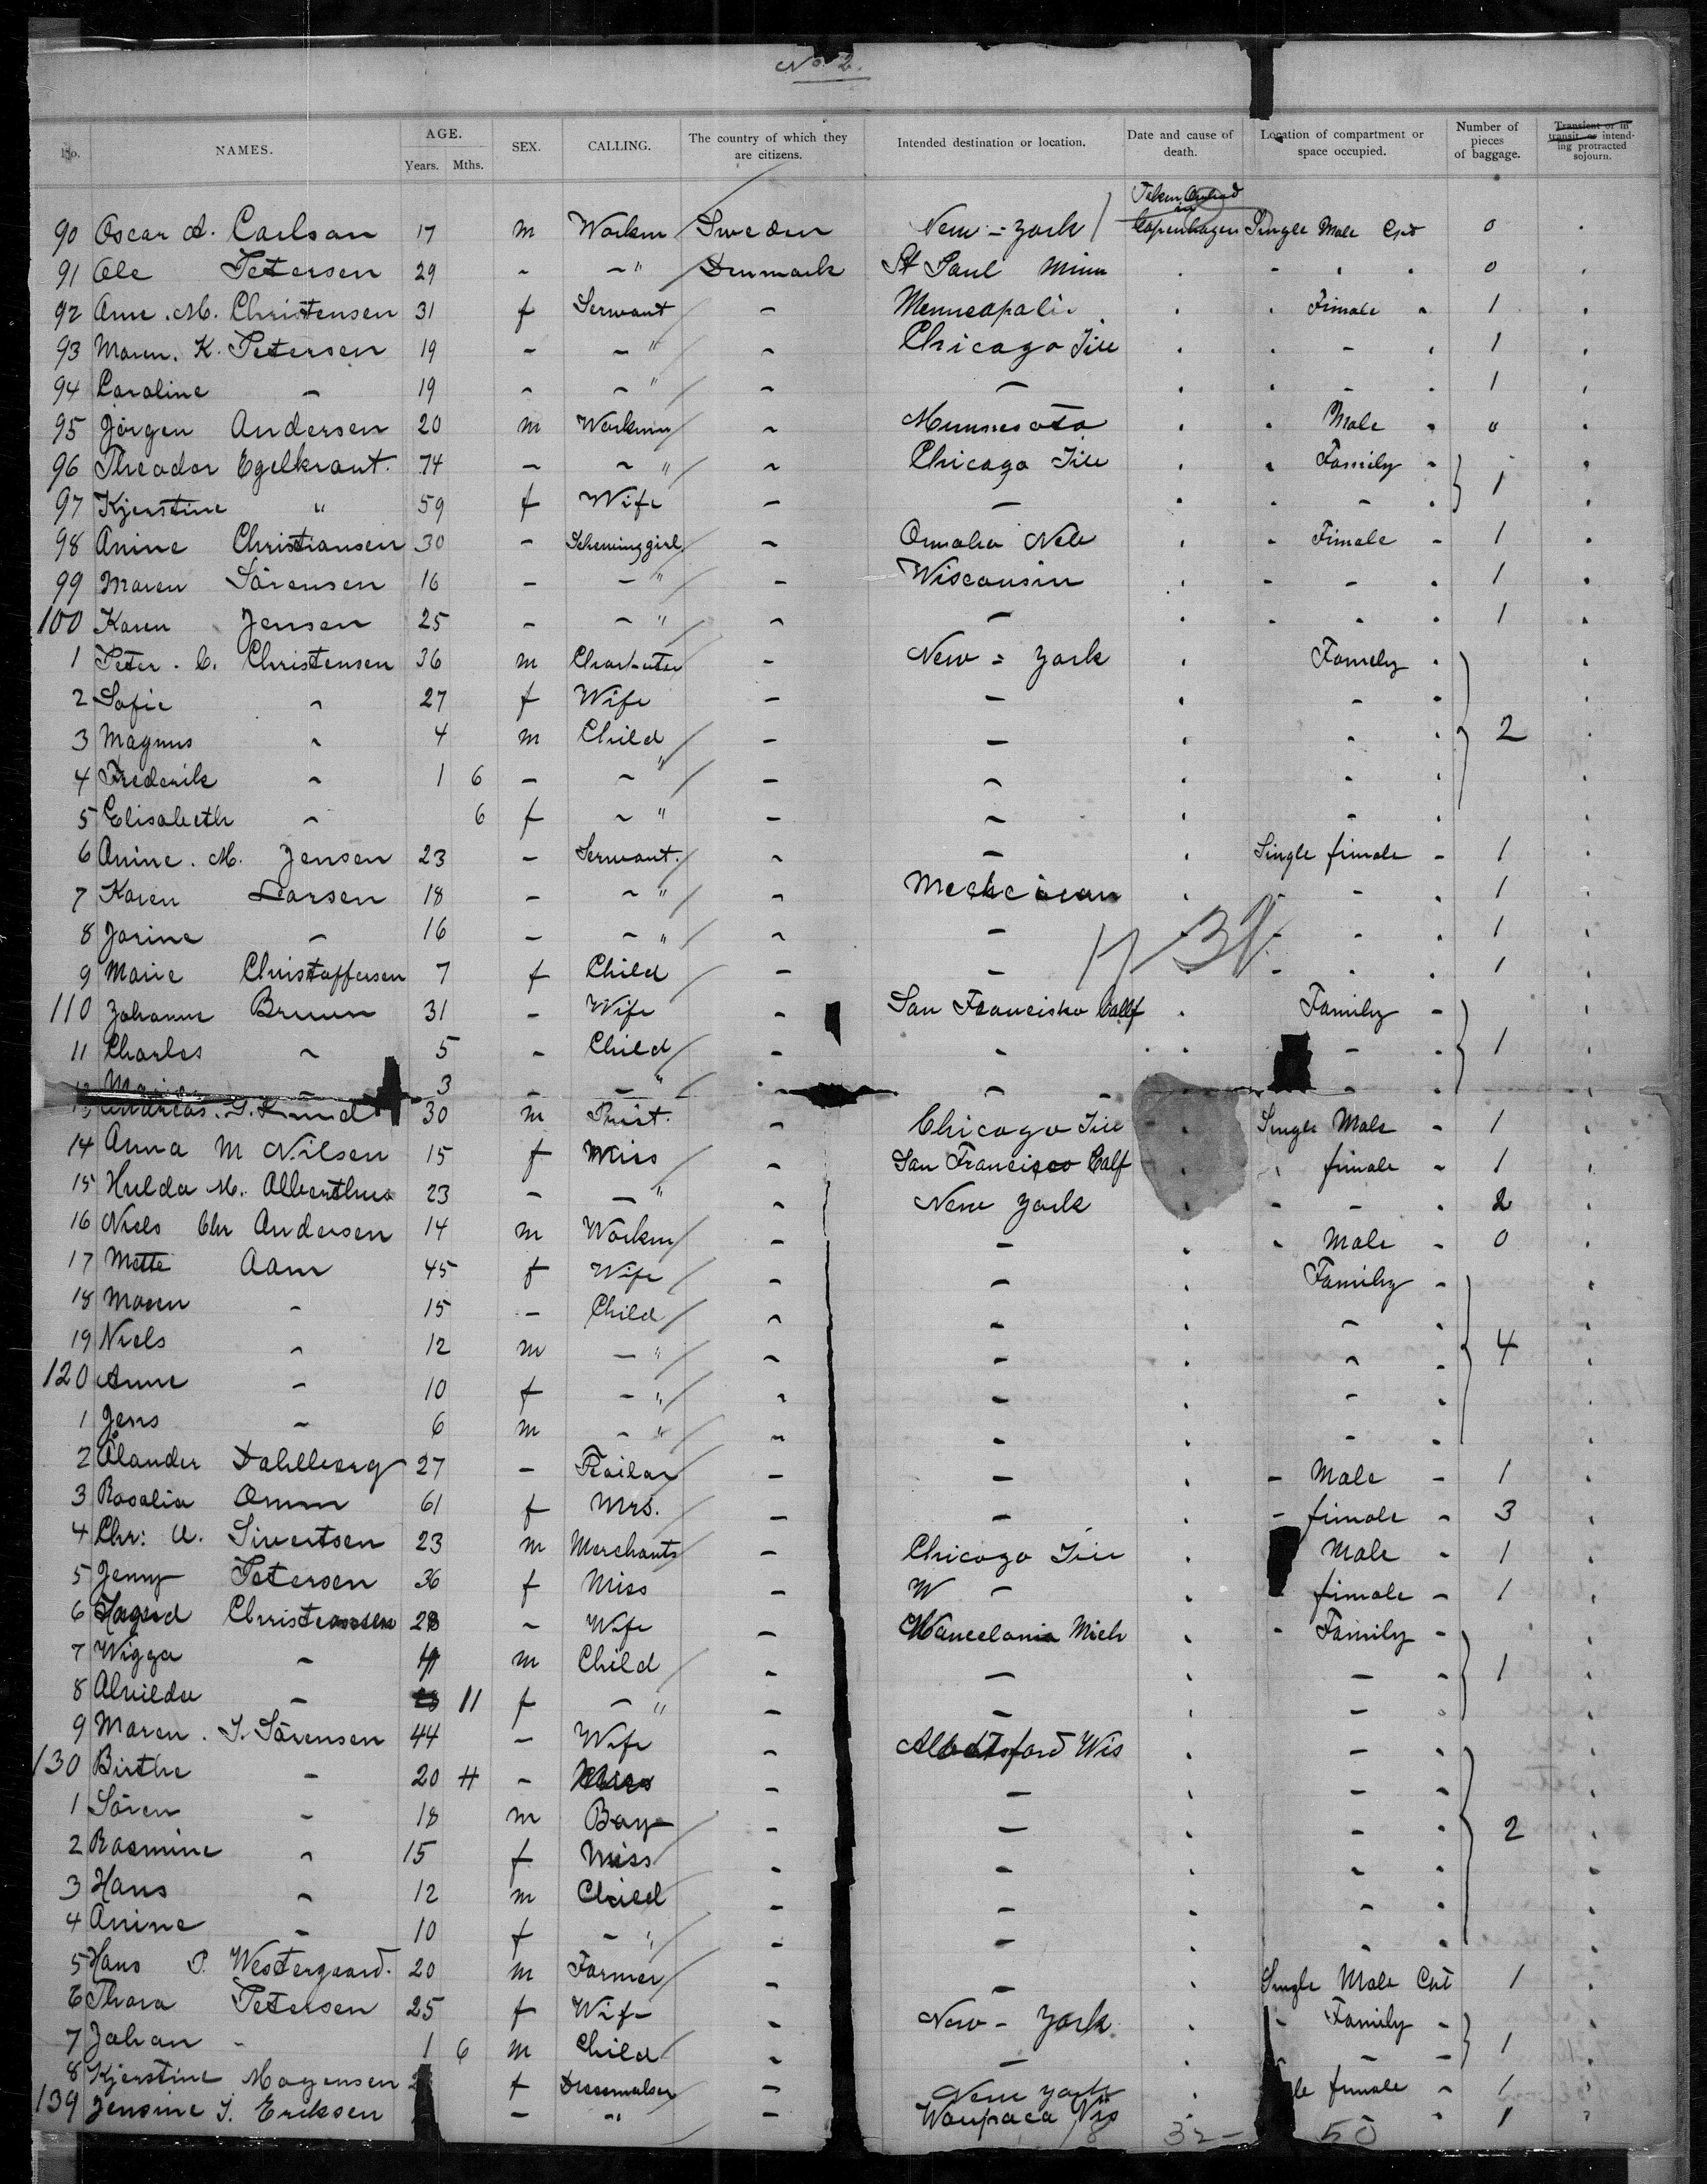 No. 2.
No. NAMES. AGE. Years. Mths. SEX. CALLING. The country of which they are citizens. Intended destination or location. Date and cause of death. Location of compartment or space occupied. Number of pieces of baggage. Transient or in transit, or intending protracted sojourn.
Taken Onbord in
90 Oscar A. Carlson 17 m Workm Sweden New = York Copenhagen Single Male Cpt 0
91 Ole Petersen 29 - - " Denmark St Paul Minn - 0
92 Ane . M. Christensen 31 f Servant - Menneapolis Fimale 1
93 Maren. K. Petersen 19 - - " - Chicago Jlle - 1
94 Caroline - 19 - - " - - - 1
95 Jörgen Andersen 20 m Workmn - Minnesota Male "
96 Theodor Egelkraut. 74 - - " - Chicago Jlle Family
97 Kjerstine " 59 f Wife - - - 1
98 Anine Christiansen 30 - Schewinggirl - Omaha Neb - Fimale - 1
99 Maren Sörensen 16 - - " - Wisconsin - - 1
100 Karen Jensen 25 - - " - - 1
1 Peter . C. Christensen 36 m - New = York Family
2 Sofie - 27 f Wife - - -
3 Magnus - 4 m Child - - 2
4 Frederik - 1 6 - - " - -
5 Elisabeth - 6 f - " - -
6 Anine . M. Jensen 23 - Servant. - - Single fimale - 1
7 Karen Larsen 18 - - " - - 1
8 Jorine - 16 - - " - - - 1
9 Marie Christoffersen 7 f Child - - - 1
110 Johanne Bruun 31 - Wife - San Francisko Callf Family -
11 Charles - 5 - Child - - - 1
12 Maria - 3 - - " - - -
13 Andreas. G. 30 m - Chicago Jlle Single Male - 1
14 Anna M Nilsen 15 f Miss - San Francisco Calf fimale - 1
15 Hulda M. 23 - - " - New York - - 2
16 Niels Chr Andersen 14 m Workm - - Male - 0
17 Mette Aam 45 f Wife - - Family -
18 Maren - 15 - Child - - -
19 Niels - 12 m - " - - - 4
120 Anne - 10 f - " - - -
1 Jens - 6 m - " - - -
2 Dahlberg 27 - - - - Male - 1
3 Rosalia 61 f Mrs. - - - fimale - 3
4 Chr: A. Sivertsen 23 m Merchants - Chicago Jlle Male - 1
5 Jenny Petersen 36 f Miss - W - fimale - 1
6 Christiansen 28 - Wife - Mancelania Mich - Family -
7 Wigga - m Child - - - 1
8 Alvilda - 11 f - " - - -
9 Maren . S. Sörensen 44 - Wife - Abbotsford Wis -
130 Birthe - 20 - - - -
1 Sören - 18 m Boy - - - 2
2 Rasmine - 15 f Miss - - -
3 Hans - 12 m Child - - -
4 Anine - 10 f - " - -
5 Hans P. Westergaard. 20 m Farmer - - Single Male Cpt 1
6 Thora Petersen 25 f Wife - New - York - Family -
7 Johan - 1 6 m Child - - - 1
8 Kjerstine Mogensen f - New York fimale - 1
139 Jensine S. Eriksen - " - Waupaca Wis 1
32 - 50